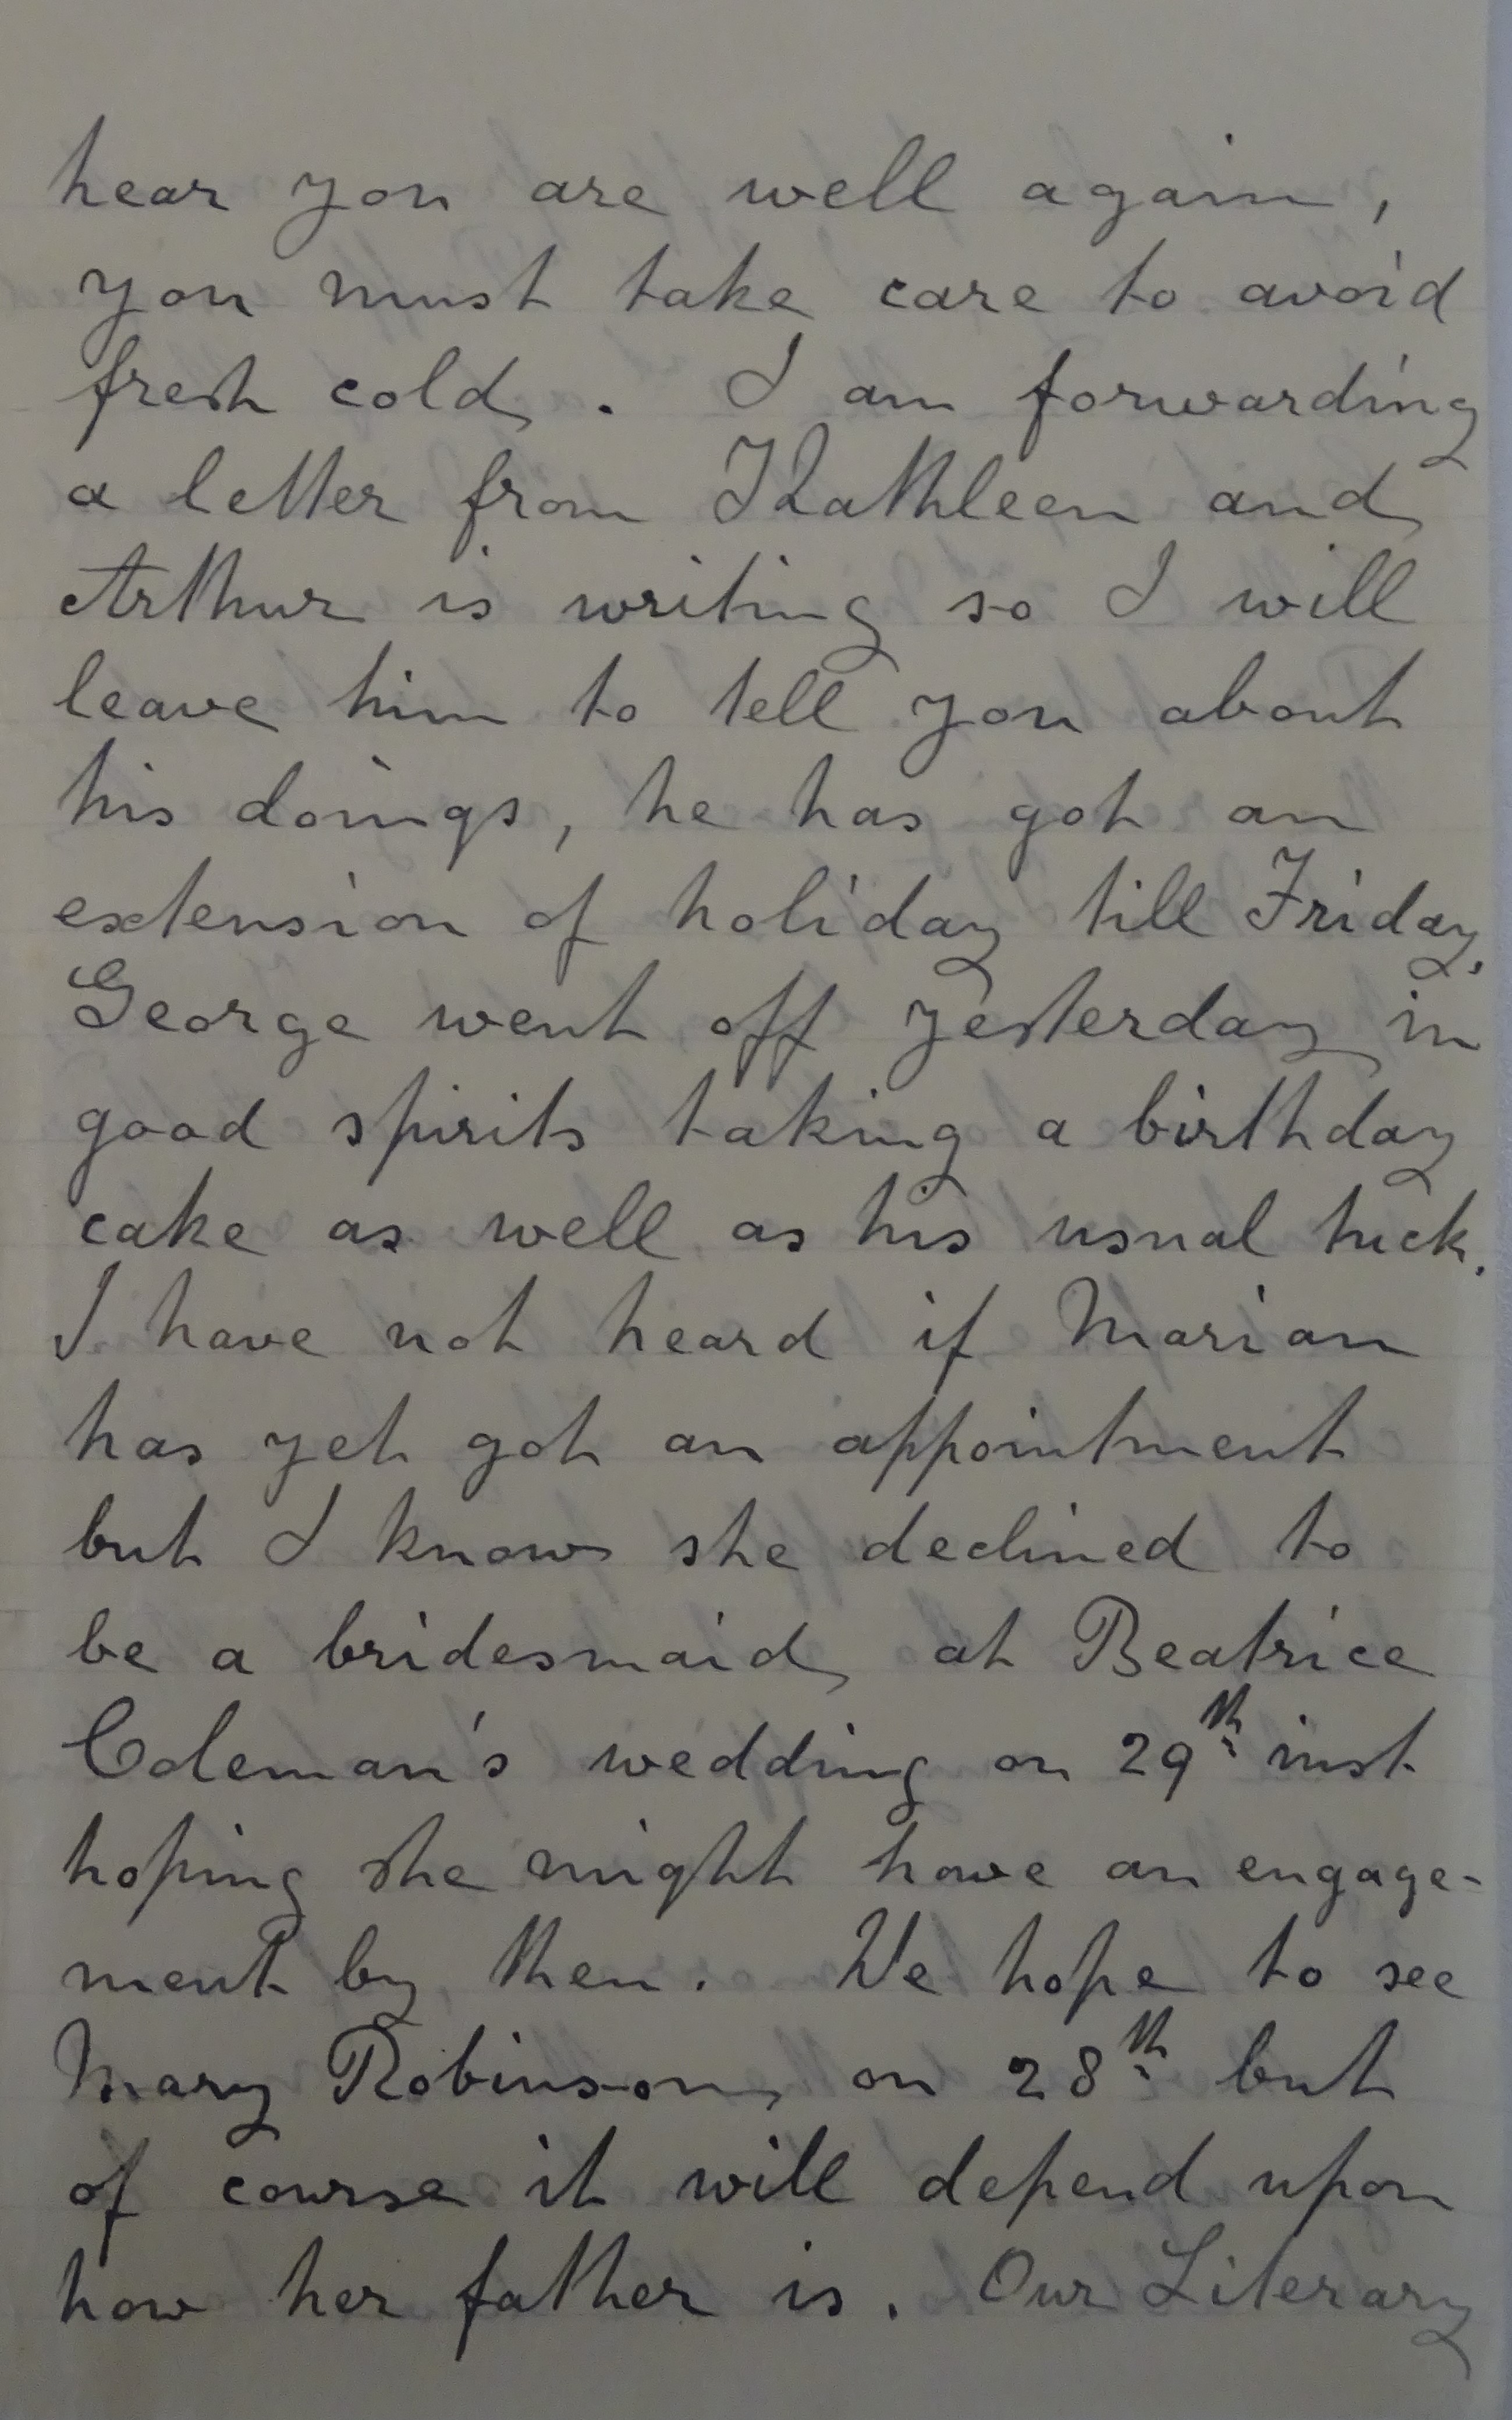 hear you are well again,
you must take care to avoid
fresh cold. I am forwarding
a letter from Kathleen and
Arthur is writing so I will
leave him to tell you about
his doings, he has got an
extension of holiday till Friday,
George went off yesterday in
good spirits taking a birthday
cake as well as his usual tuck.
I have not heard if Marian
has yet got an appointment
but I know she declined to
be a bridesmaid at Beatrice
Coleman's wedding on 29th inst
hoping she might have an engage-
ment by then. We hope to see
Mary Robinson on 28th but
of course it will depend upon
how her father is. Our Literary